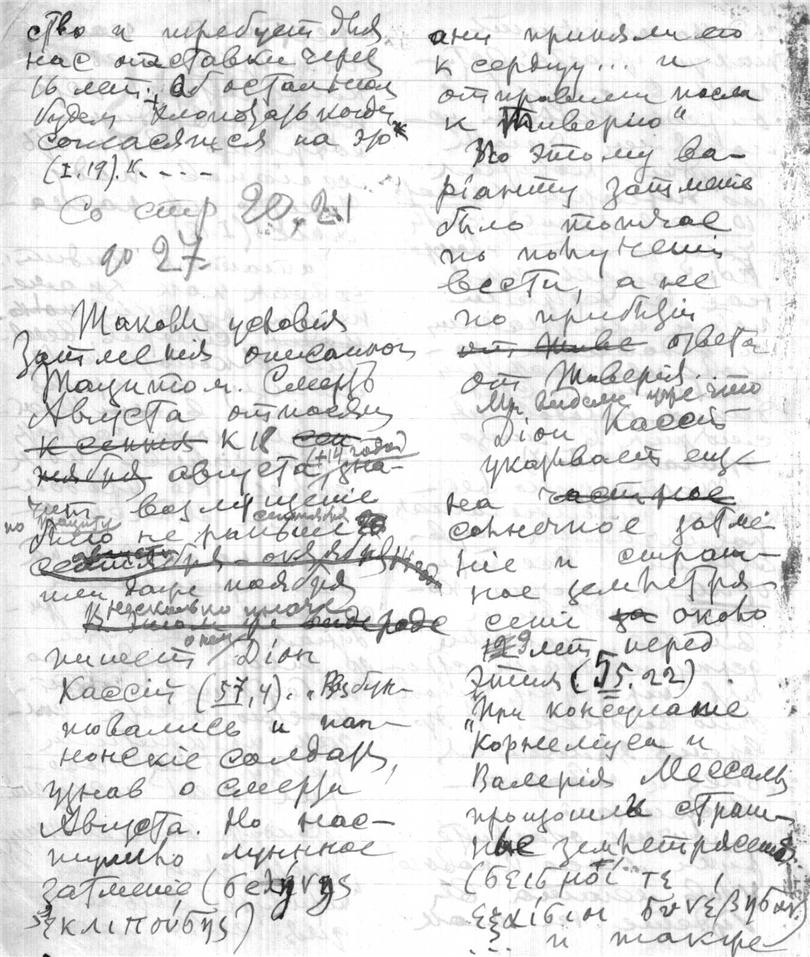 ство и требует для
нас отставки через
16 лет. Об остальном
будем хлопотать когда
согласятся на это"
(I.19). К....
Со стр 20, 21
до 27
Таковы условия
Затмения описанного
Тацитом. Смерть
Августа относят
к сентя к 18 сен
тября августа (+14 года) зна-
чит возмущение
по Тациту было не раньше сентября
сентября - октября
или даже ноября
Несколько иначе
пишет о нем Дион
Кассий (57,4). "Взбун-
товались и пан-
нонские солдаты,
узнав о смерти
Августа. Но нас-
тупило лунное
затмение (σελήνης
ἐκλιπούσης)
они приняли его
к сердцу... и
отправили посла
к Тиверию"
По этому ва-
рианту затмение
было тотчас
по получении
вести, а не
по прибытии
от Тиве ответа
от Тиверия.
Мы видели уже что
Діон Кассій
указывает еще
на частное
солнечное затме
ние и страш-
ное землетря-
сение за около
9 лет перед
этим (55.22)
"При консулате
Корнелиуса и
Валерия Мессалы
произошли страш-
ные землетрясения
(σεισμοί τε
и также